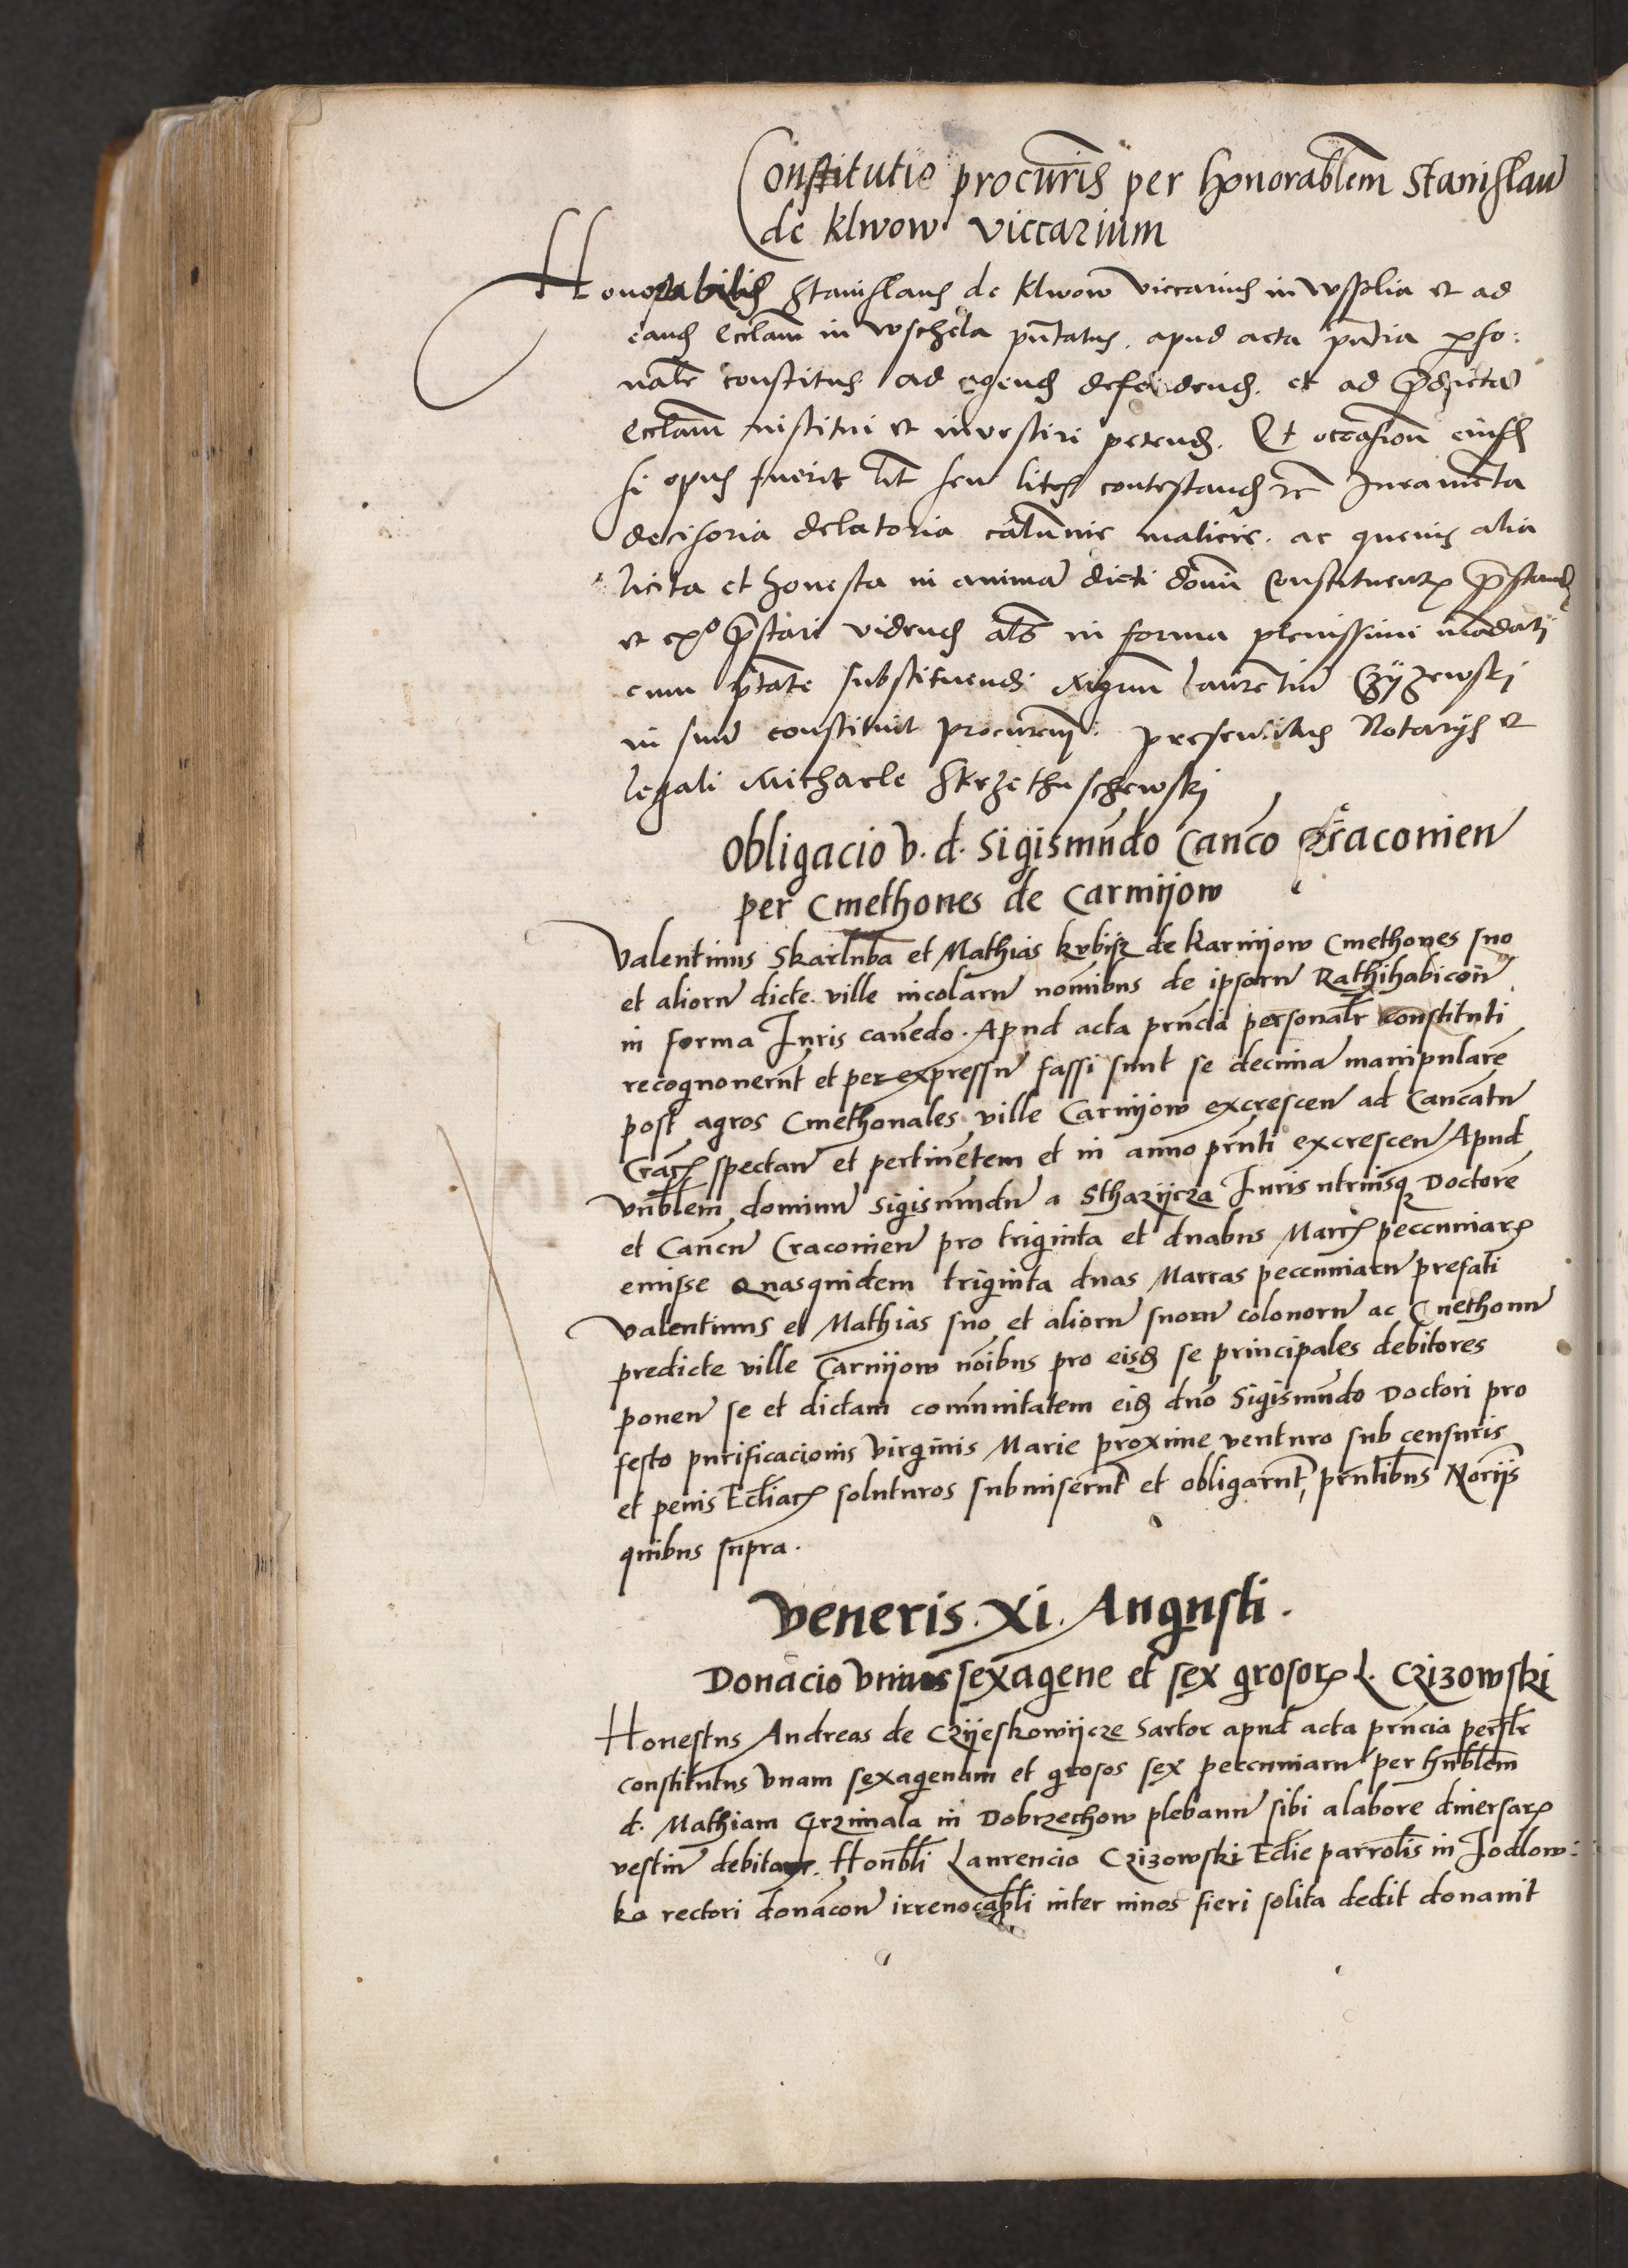 Constitutio procuris per honorablem Stanislau
de Klwow viccarium
Honorabilis Stanislaus de Klwow viccarius in Wssolia et ad
eand Ecclam in Wschela pntatus. apud acta pntia perso:
nalr constitus ad agend defendend. et ad predicta
Ecclam institui et investiri petend. Et occasion eiusd
si opus fuerit lit seu lites contestand rc Iuramenta
decisoria delatoria calumnie malicie. ac quevis alia
licita et honesta in anima dicti domi Constituent prestand
et ex° prestari vidend als in forma plenissimi madati
cum ptate substituendi Mgrum laurentiu Czyzewski
in suu constituit procurem. presentibus Notarijs et
legali Michaele Skrzethuschewski
Obligacio v. d. Sigismundo Canco Craconien
per Cmethones de Carnijow
Valentinus Skarluba et Mathias kvbisz de Karnijow Cmethones suo
et alioru dicte ville incolaru nominibus de ipsoru Rathihabicoin
in forma Iuris canendo. Apud acta prncia personalr constituti
recognouerunt et per expressu fassi sunt se decima manipulare
post agros Cmethonales ville Carnijow excrescen ad Cancatu
Crac spectan et pertinetem et in anno prnti excrescen Apud
vnblem dominu Sigismundu a Sthazijcza Iuris utriusq Doctore
et Cancu Craconien pro triginta et duabus Marc peccuniar
emisse Quasquidem triginta duas Marcas peccuniaru prefati
Valentinus et Mathias suo et alioru suoru colonoru ac Cmethonu
predicte ville Carnijow noibus pro eisd se principales debitores
ponen se et dictam comunitatem eid dno Sigismundo Doctori pro
festo purificacionis virginis Marie proxime venturo sub censuris
et penis Ecliar soluturos submiserunt et obligarunt, prntibus Norijs
quibus supra.
Veneris. XI. Augusti.
Donacio vnius sexagene et sex grosor L. Czizowski
Honestus Andreas de Czijeskowijcze Sartor apud acta prncia perslr
constitutus vnam sexagenam et grosos sex peccuniaru per hnblem
d. Mathiam Grzimala in Dobrzechow plebanu sibi a labore diuersar
vestiu debitas. Honbli Laurencio Czizowski Eclie parrolis in Jodlow:
ka rectori donacon irreuocabli inter viuos fieri solita dedit donauit